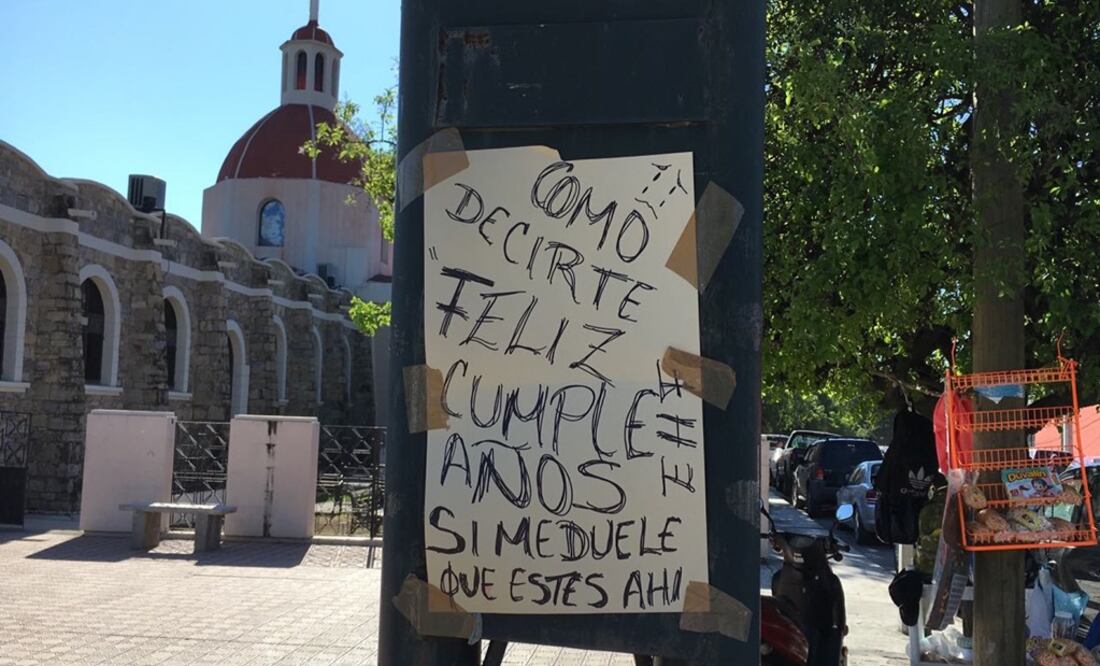 COMO
DECIRTE
"FELIZ
CUMPLE
AÑOS
SI ME DUELE
QUE ESTES AHI
Duvalín
adidas